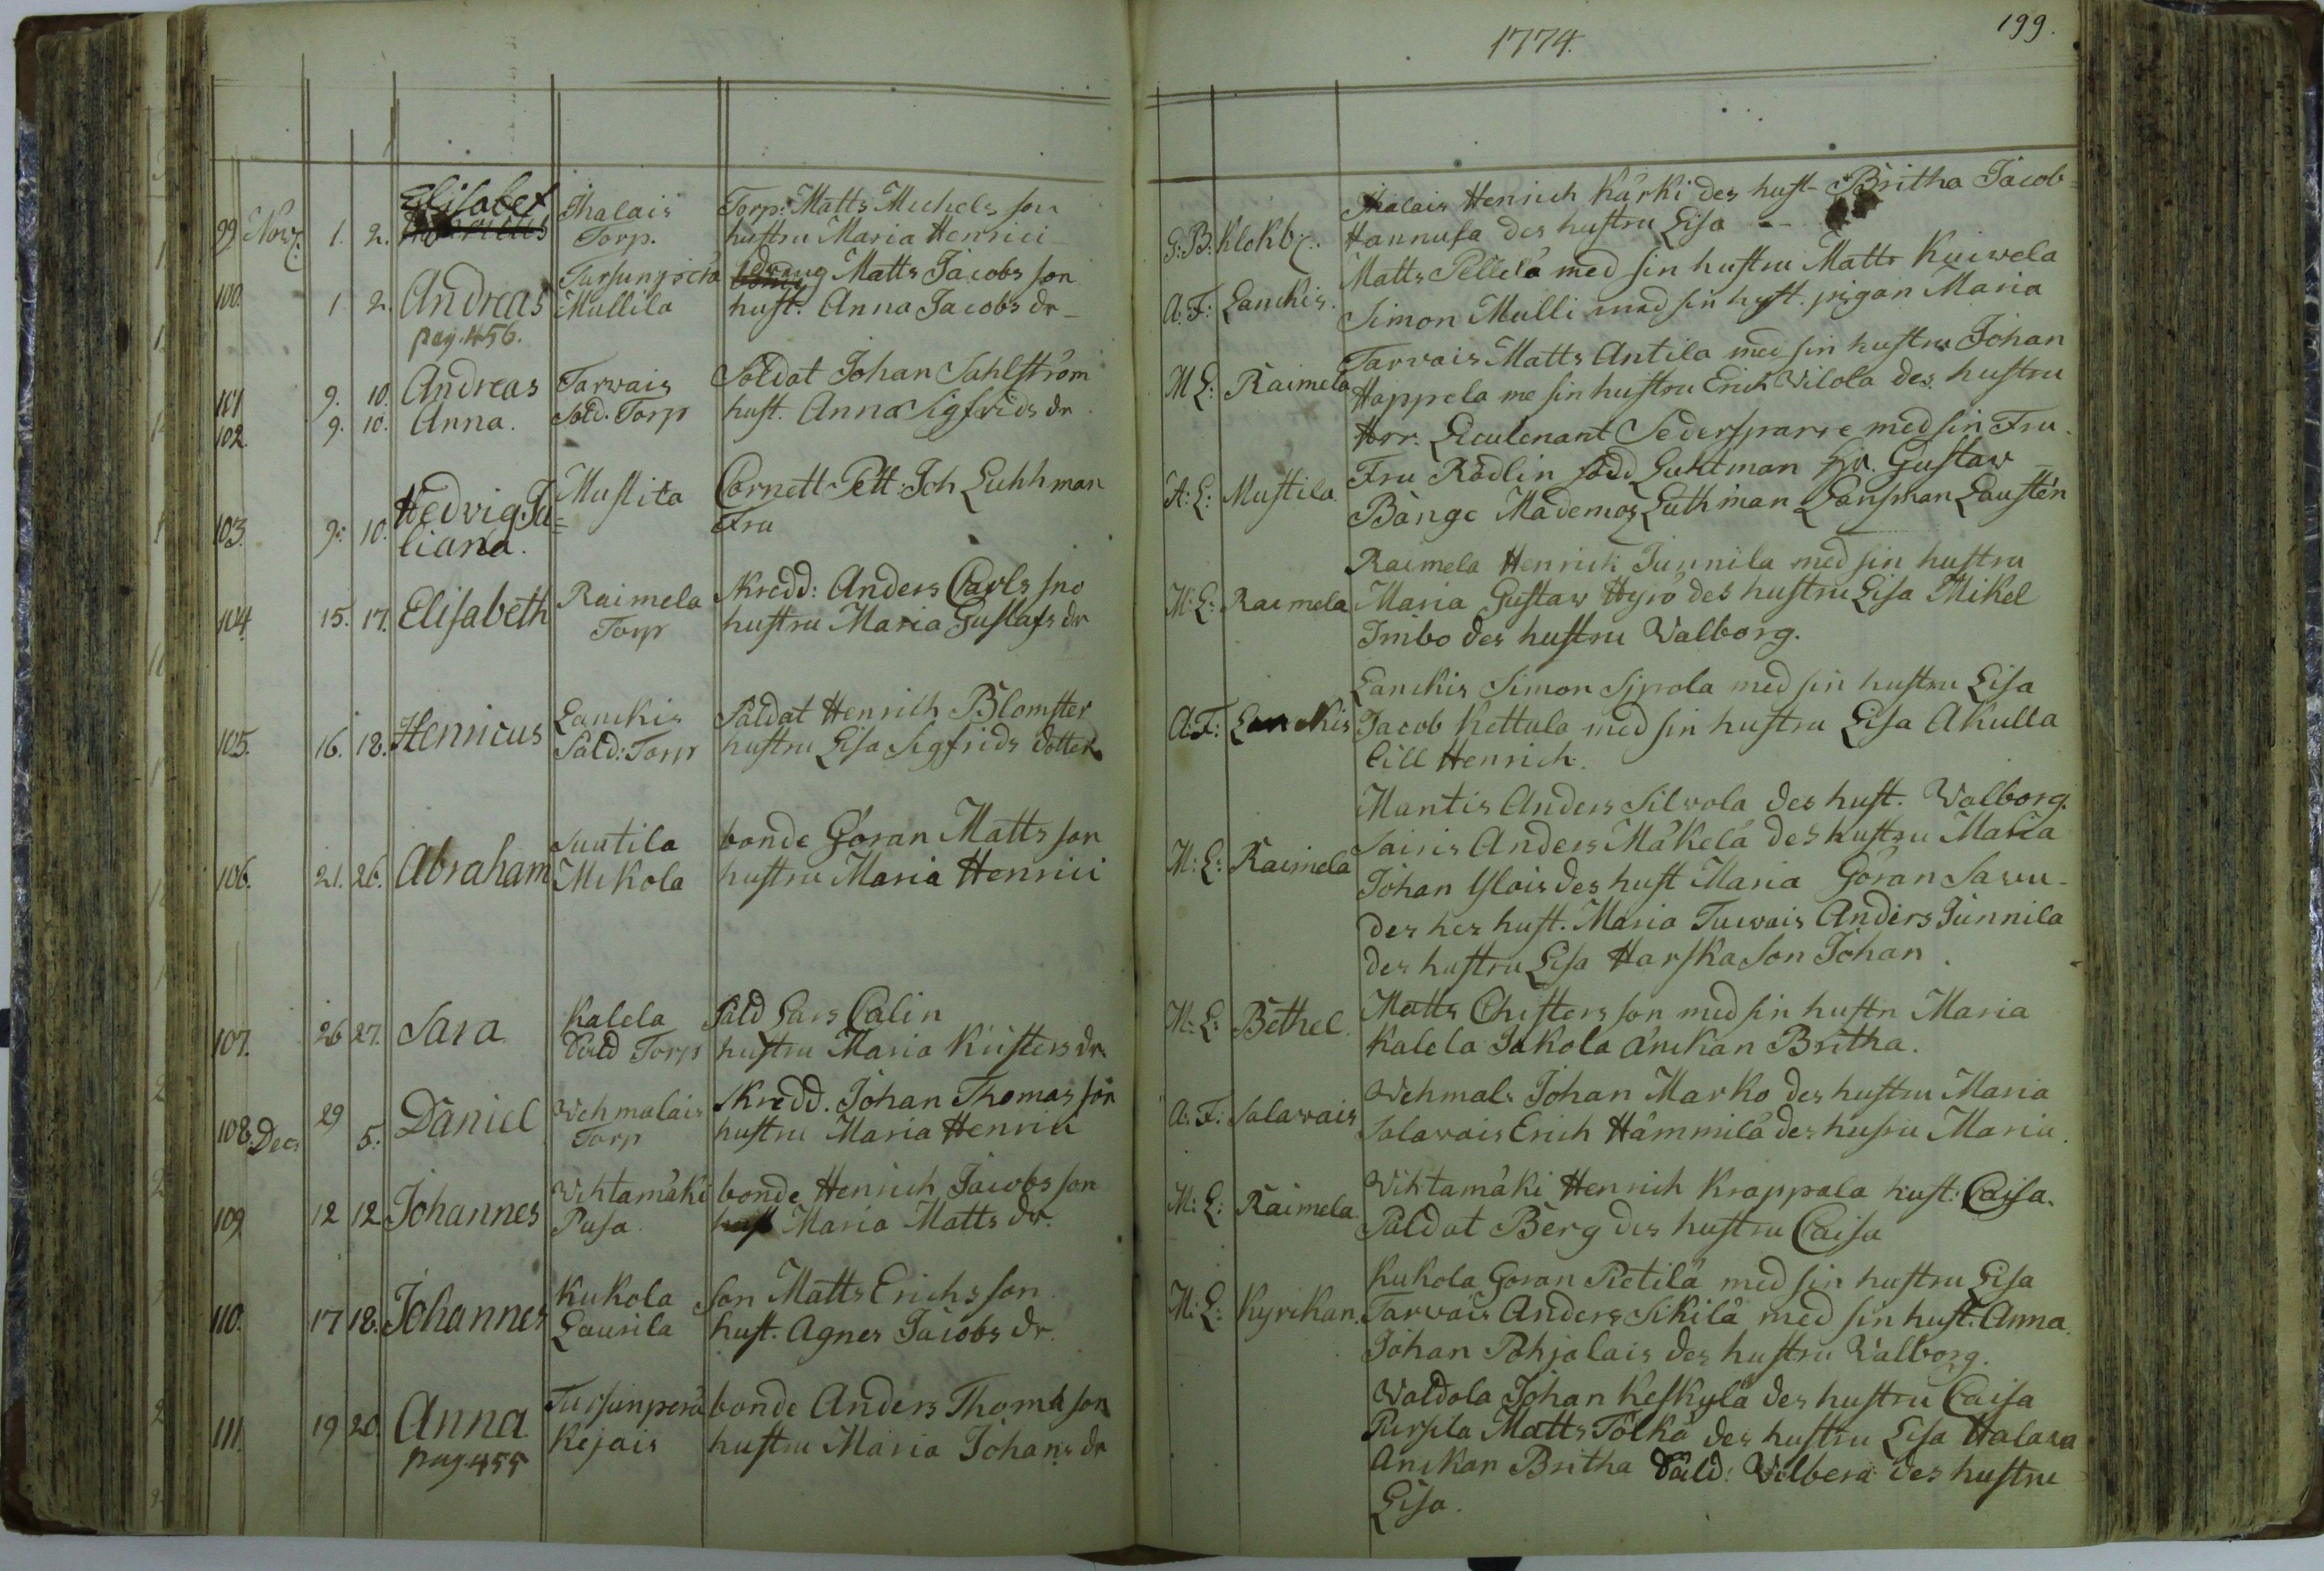 1774.
199.
Elisabet
99 Nov. 1. 2.
Ihalais
Torp.
Torp: Matts Michels son
hustru Maria Henrici
100. 1 2. Andreas
pag. 456.
Tursunperä
Mullila
drang Matts Jacobs son
hust. Anna Jacobs dr
101 9. 10. Andreas
102. 9. 10. Anna.
Tarvais
Sold. Torp
Soldat Johan Sahlström
hust. Anna Sigfrids dr
103. 9. 10. Hedvig Ju=
liana.
Mustila
Cornett Joh Luhhman
Fru
104. 15. 17. Elisabeth
Raimela
Torp
Skredd: Anders Carls sno
hustru Maria Gustafs dr
105. 16. 18. Henricus
Lanckis
Sald: Torp
Saldat Henrich Blomster
hustru Lisa Sigfrids dotter
106. 21. 26. Abraham
Suutila
Mikola
bonde Göran Matts son
hustru Maria Henrici
107. 26 27. Sara
Kalela
Sald Torp
Sald Lars Calin
hustru Maria Kristers dr.
108. Dec. 29 5. Daniel
Wehmalais
Torp
Skredd. Johan Thomas son
hustru Maria Henrici
109. 12 12. Johannes
Vihtamäki
Pasa
bonde Henrich Jacobs son
hust Maria Matts dr.
110. 17 18. Johannes
Kukola
Laurila
Son Matts Erichs son
hust. Agnes Jacobs dr.
111. 19 20. Anna
pag. 455
Tursunperä
Kejais
bonde Anders Thomas son
hustru Maria Johans dr
Ihalais Henrich Kärki des hust Britha Jacob
G: B: Klokb. Hannula des hustru Lisa
Matts Pellelä med sin hustru Matts Kuiwela
A. F: Lanckis. Simon Mulli med sin hust. pigan Maria
Tarvais Matts Antila med sin hustru Johan
M L: Raimela Happela me sin hustru Erich Vilola des hustru
Herr. Lieutenant Sedersparre med sin Fru.
Fru Rödlin född Luhtman Gustav
A: L: Mustila Bånge Mademos Luthman Länsman Laustén
Raimela Henrich Junnila med sin hustru
M: L: Raimela Maria Gustav Hyrö des hustru Lisa Mikel
Imbo des hustru Valborg.
Lanckis Simon Sipola med sin hustru Lisa
A. F: Lanckis Jacob Kettula med sin hustru Lisa Akulla
lill Henrich.
Mantis Anders Silvola des hust. Walborg.
Sairis Anders Mäkelä des hustru Maria
M: L: Raimela Johan Ylois des hust Maria Göran Savu-
des hust. Maria Anders Junnila
des hustru Lisa Harska Son Johan.
M: L: Bethel. Matts Christers son med sin hustru Maria
Kalela Jakola änckan Britha.
Wehmal. Johan Marko des hustru Maria
A. F: Salavais Salavais Erich Hämmilä des hustru Maria.
Vihtamäki Henrich Krappala hust: Caisa.
M: L: Raimela. Saldat Berg des hustru Caisa
Kukola Göran Pietilä med sin hustru Lisa
M: L: Kyrckan. Tarvais Anders Sikilä med sin hust. Anna.
Johan Pohjalais des hustru Valborg.
Valdola Johan Keskylä des hustru Caisa
Pursila Matts Tölkö des hustru Lisa
Anckan Britha Säld: des hustru
Lisa.